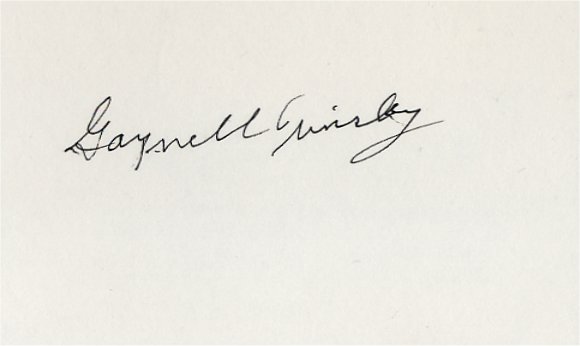 Gaynell Tinsley